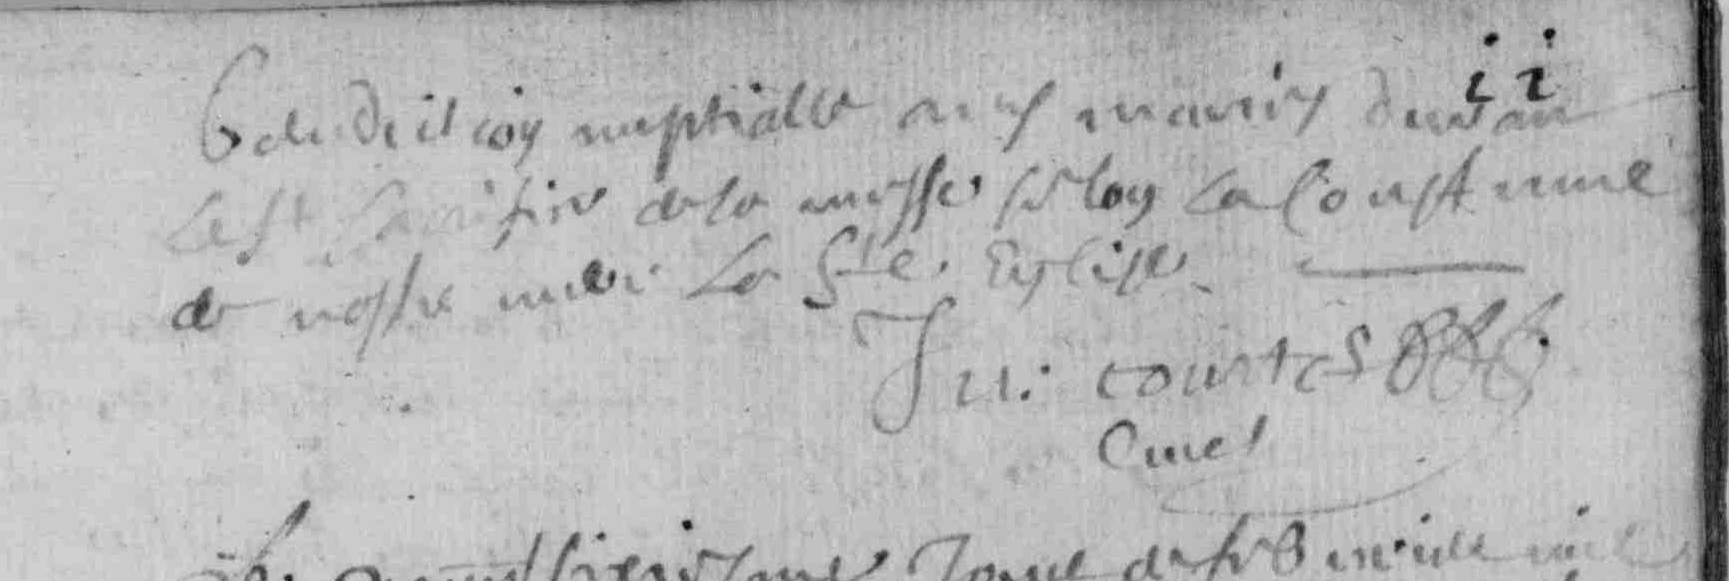 ii
benedition nuptialle aux mariés durant
le st sacrifice de la messe selon la coustume
de nostre mere la Ste Esglise
Ju: courtes
Curé
Le quatriesme Jour de feb mille